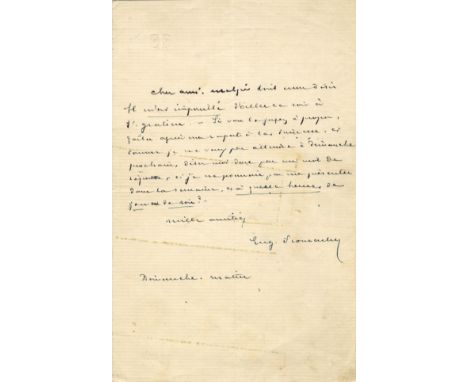 cher ami. malgré tout mon désir
il m'est impossible d'aller ce soir à
St. gratien. — Si vous le jugez à propos,
faites agréer mes à la Princesse, et
comme je ne veux pas attendre à Dimanche
prochain, dites moi donc par un mot de
réponse, si je ne pourrais pas me présenter
dans la semaine, et à quelle heure, de
jour ou de soir?
mille amitiés
Eug. Fromentin
Dimanche. matin